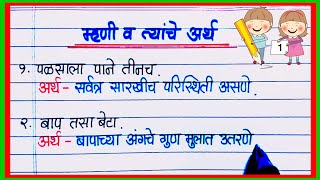 म्हणी व त्यांचे अर्थ
१. पळसाला पाने तीनच.
अर्थ - सर्वत्र सारखीच परिस्थिती असणे.
२. बाप तसा बेटा.
अर्थ - बापाच्या अंगचे गुण मुलात उतरणे
1